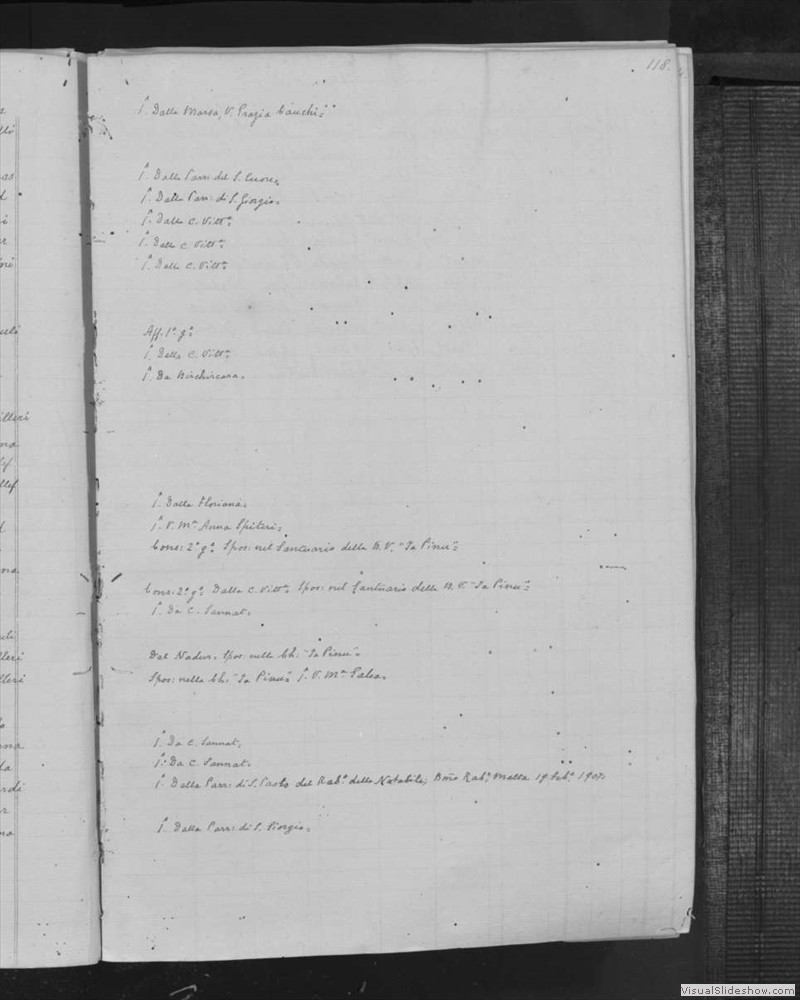 118.
Dalla Marsa, V. Grazia Cauchi.
Dalla Parr: del S. Cuore.
Dalla Parr: di S. Giorgio.
Dalla C. Vittª.
Dalla C. Vittª.
Dalla C. Vittª.
Aff. 1º gº.
Dalla C. Vittª.
Da Birchircara.
Dalla Floriana.
V. Mª Anna Spiteri.
Cons: 2º gº. Spos: nel Santuario della B. V. "Ta Pinu".
Cons: 2º gº. Dalla C. Vittª. Spos: nel Santuario della B. V. "Ta Pinu".
Da C. Sannat.
Dal Nadur. Spos: nella Ch: "Ta Pinu".
Spos: nella Ch: "Ta Pinu". V. Mª Galea.
Da C. Sannat.
Da C. Sannat.
Dalla Parr: di S. Paolo del Rabº. della Notabile, Rabº. Malta 19 1907.
Dalla Parr: di S. Giorgio.
illeri
lleri
lleri
VisualSlideshow.com